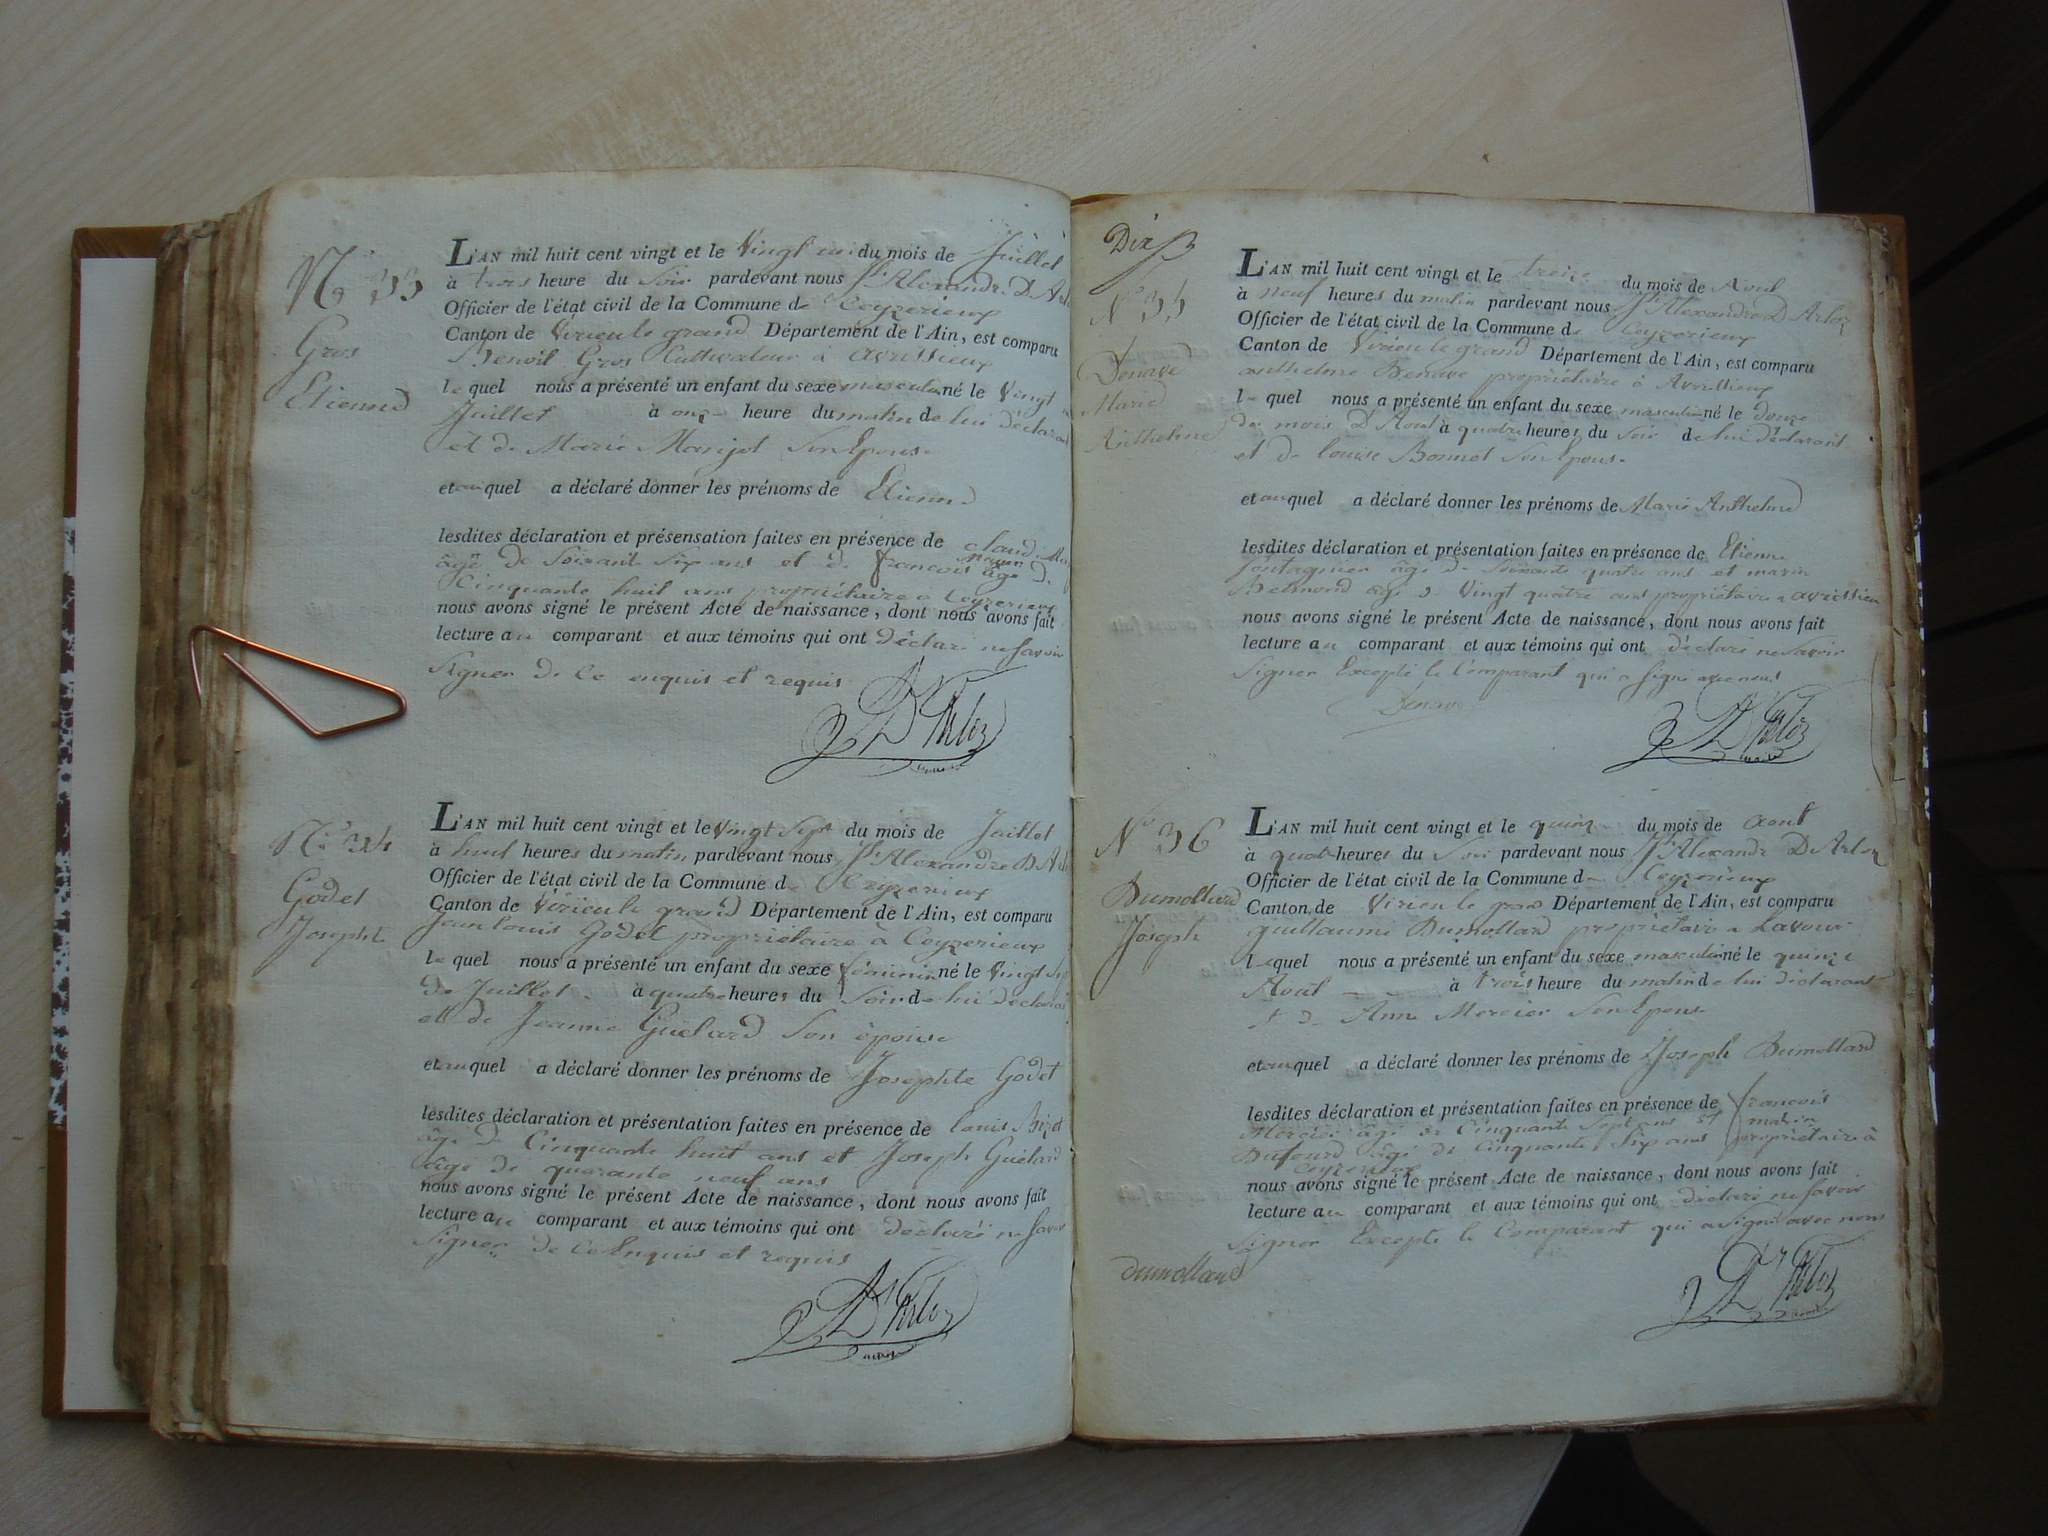 N° 33
Gros
Etienne
L'AN mil huit cent vingt et le Vingt du mois de Juillet
à trois heure du Soir pardevant nous Alexandre D
Officier de l'état civil de la Commune de Ceyzerieux
Canton de Virieu le grand Département de l'Ain, est comparu
Benoit Gros Cultivateur à avrissieux
le quel nous a présenté un enfant du sexe masculin né le Vingt
Juillet à onze heure du matin de lui déclarant
et de Marie Marjot Son Epouse
et auquel a déclaré donner les prénoms de Etienne
lesdites déclaration et présensation faites en présence de claude
âgé de Soixante Six ans et de françois âgé de
Cinquante huit ans propriétaire a Ceyzerieux
nous avons signé le présent Acte de naissance, dont nous avons fait
lecture au comparant et aux témoins qui ont Déclaré ne Savoir
Signer de Ce enquis et requis
D'Arloz
N° 34
Godet
Josephte
L'AN mil huit cent vingt et le Vingt Sept du mois de Juillet
à huit heures du matin pardevant nous Alexandre D
Officier de l'état civil de la Commune de Ceyzerieux
Canton de Virieu le grand Département de l'Ain, est comparu
Jean louis Godet propriétaire à Ceyzerieux
le quel nous a présenté un enfant du sexe féminin né le Vingt
de Juillet à quatre heures du Soir de lui déclarant
et de Jeanne Guélard Son épouse
et auquel a déclaré donner les prénoms de Josephte Godet
lesdites déclaration et présentation faites en présence de louis Bizet
âgé de Cinquante huit ans et Joseph Guélard
âgé de quarante neuf ans
nous avons signé le présent Acte de naissance, dont nous avons fait
lecture au comparant et aux témoins qui ont déclaré ne Savoir
Signer de Ce Enquis et requis
D'Arloz
Dix
N° 35
Denave
Marie
Anthelme
L'AN mil huit cent vingt et le treize du mois de Aout
à neuf heures du matin pardevant nous Alexandre D Arloz
Officier de l'état civil de la Commune de Ceyzerieux
Canton de Virieu le grand Département de l'Ain, est comparu
anthelme Denave propriétaire à Avrissieux
le quel nous a présenté un enfant du sexe masculin né le douze
du mois D'Aout à quatre heures du Soir de lui déclarant
et de louise Bonnet Son Epouse
et auquel a déclaré donner les prénoms de Marie Anthelme
lesdites déclaration et présentation faites en présence de Etienne
âgé de Soixante quatre ans et marin
Belmond âgé de Vingt quatre ans propriétaire a avrissieu
nous avons signé le présent Acte de naissance, dont nous avons fait
lecture au comparant et aux témoins qui ont déclaré ne Savoir
Signer Excepté le Comparant qui a Signé avec nous
Denave
D'Arloz
N° 36
Dumollard
Joseph
L'AN mil huit cent vingt et le quinze du mois de aout
à quatre heures du Soir pardevant nous Alexandre D Arloz
Officier de l'état civil de la Commune de Ceyzerieux
Canton de Virieu le grand Département de l'Ain, est comparu
guillaume Dumollard propriétaire a Lavour
le quel nous a présenté un enfant du sexe masculin né le quinze
Aout à trois heure du matin de lui déclarant
et de Anne Mercier Son Epouse
et auquel a déclaré donner les prénoms de Joseph Dumollard
lesdites déclaration et présentation faites en présence de françois
Mercier âgé de Cinquante Sept ans et marin
Dufourd âgé de Cinquante Six ans propriétaire à
Ceyzerieux
nous avons signé le présent Acte de naissance, dont nous avons fait
lecture au comparant et aux témoins qui ont déclaré ne Savoir
Signer Excepté le Comparant qui a Signé avec nous
dumollard
D'Arloz